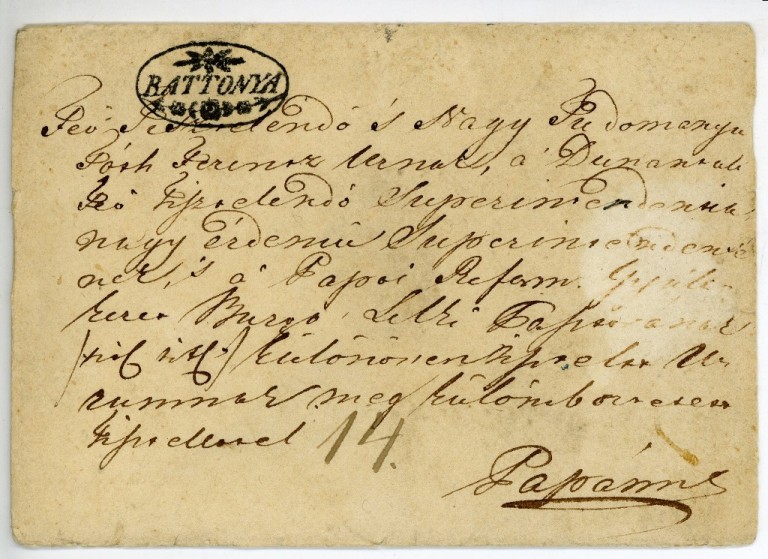 BATTONYA
Feő Tisztelendő 's Nagy Tudományu
Tóth Ferencz Urnak, a' Dunántuli
Feő Tisztelendő Superintendentia
nagy érdemü Superintendensé
nek, 's a' Pápai Reform. Gyüle-
kezet Buzgó Lelki Pásztorának
különössen tisztelt Ur
Uramnak megkülömböztetett
tisztelettel 14.
Pápánn